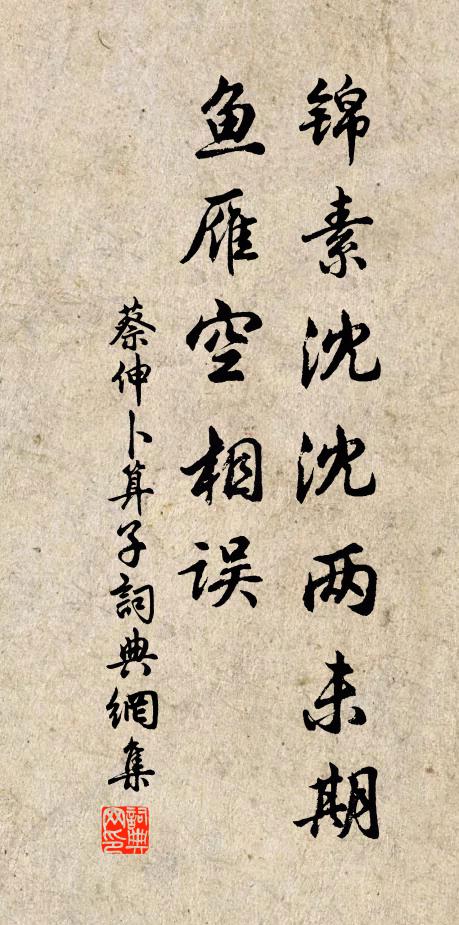 锦素沈沈两未期
鱼雁空相误
蔡伸卜算子詞典網集
詞典
网印